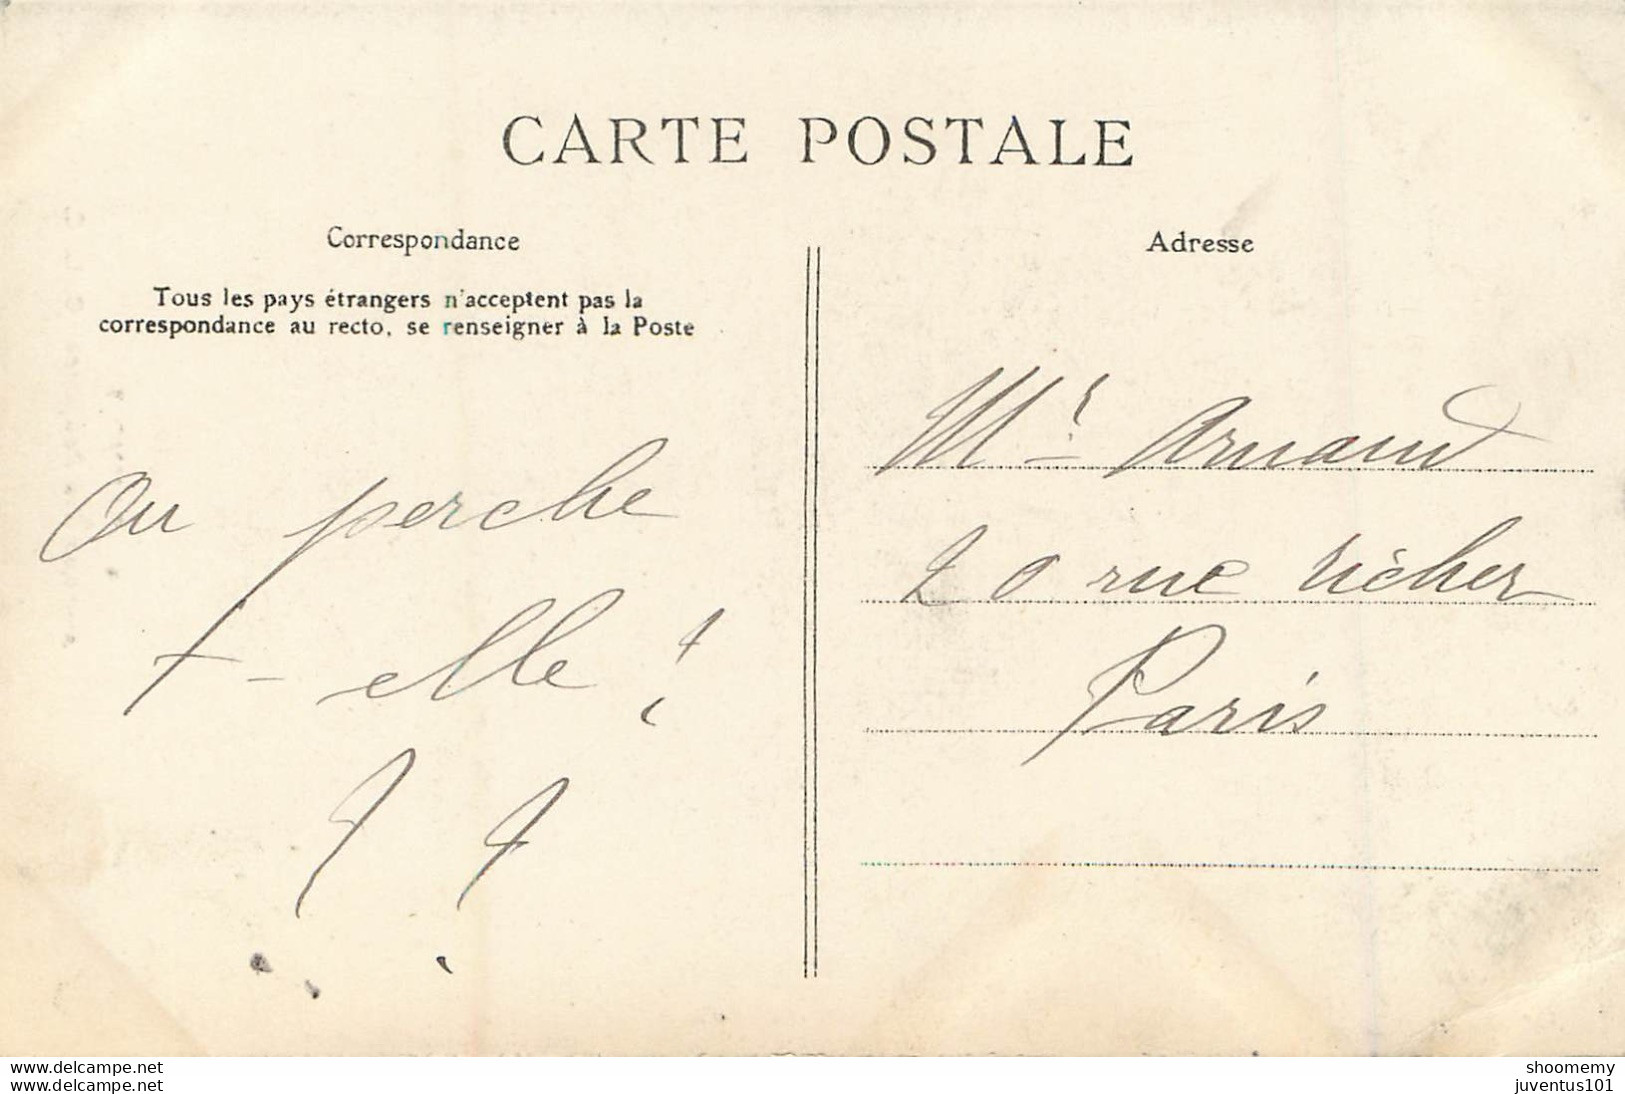 CARTE POSTALE
Correspondance
Tous les pays étrangers n'acceptent pas la
correspondance au recto, se renseigner à la Poste
Ou perche
t-elle ?
? ?
Adresse
Mr Arnaud
20 rue Richer
Paris
www.delcampe.net
www.delcampe.net
shoomemy
juventus101